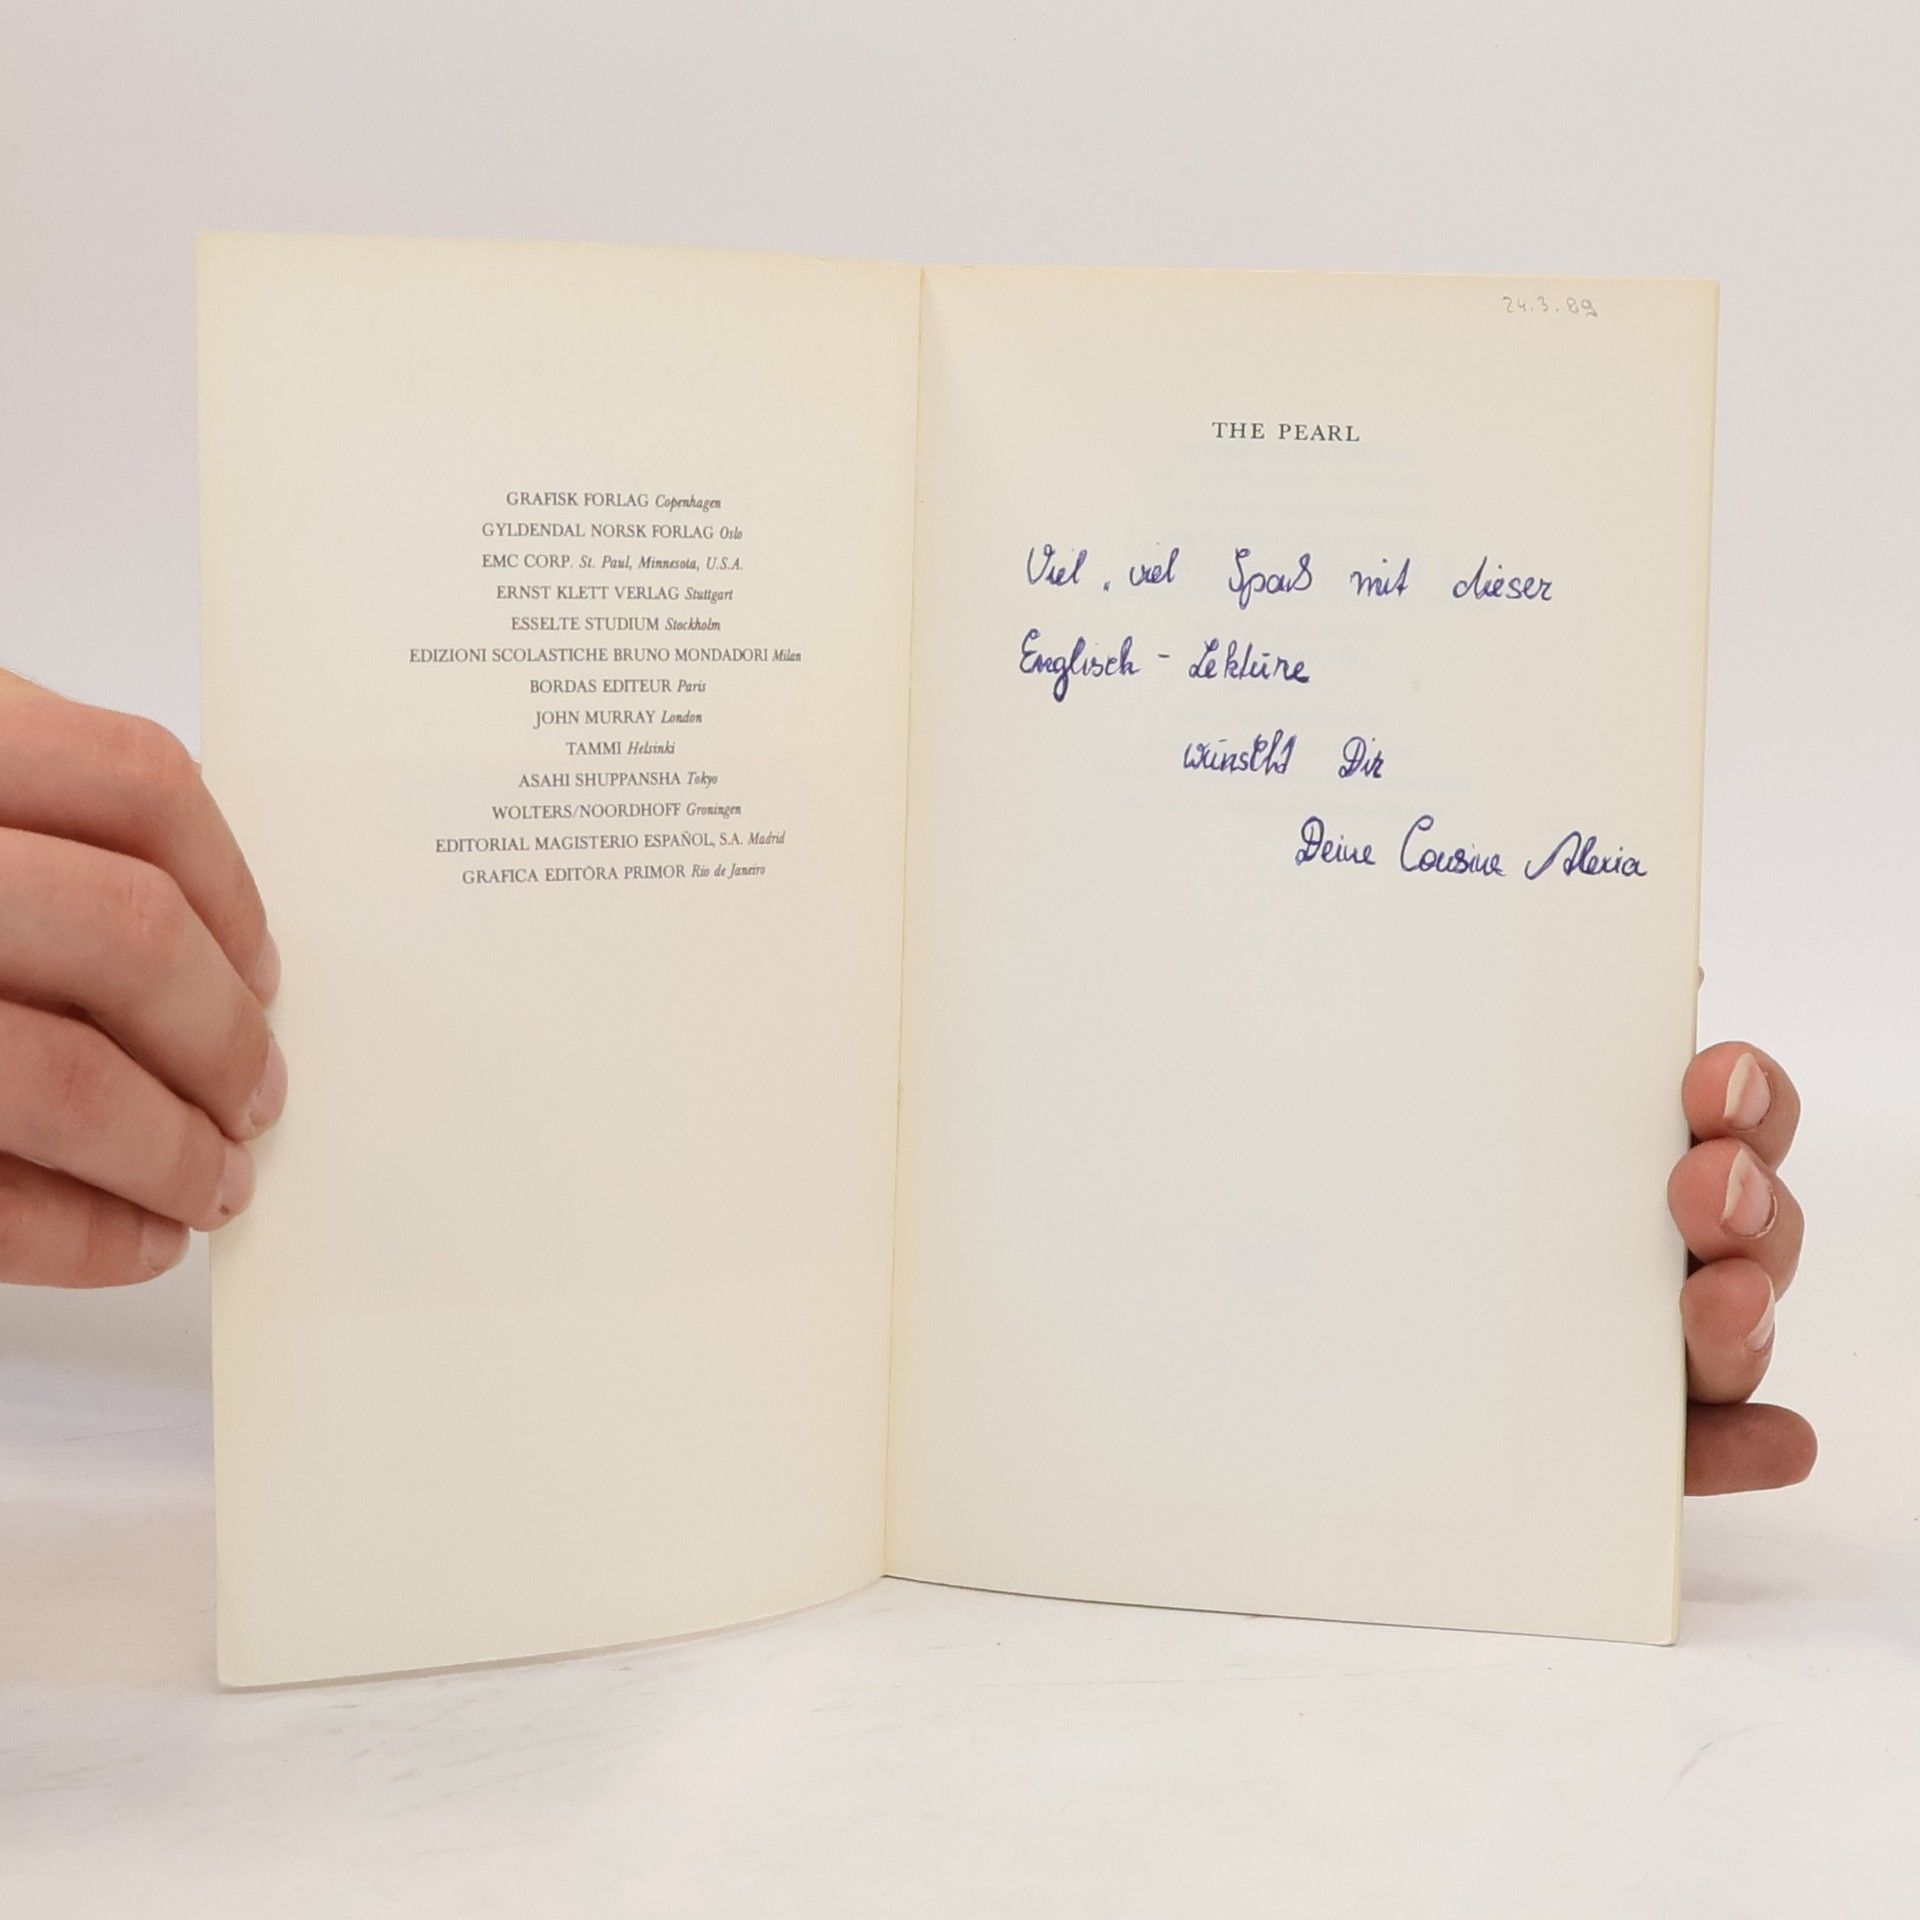 GRAFISK FORLAG Copenhagen
GYLDENDAL NORSK FORLAG Oslo
EMC CORP. St. Paul, Minnesota, U.S.A.
ERNST KLETT VERLAG Stuttgart
ESSELTE STUDIUM Stockholm
EDIZIONI SCOLASTICHE BRUNO MONDADORI Milan
BORDAS EDITEUR Paris
JOHN MURRAY London
TAMMI Helsinki
ASAHI SHUPPANSHA Tokyo
WOLTERS/NOORDHOFF Groningen
EDITORIAL MAGISTERIO ESPAÑOL, S.A. Madrid
GRAFICA EDITÔRA PRIMOR Rio de Janeiro
24.3.89
THE PEARL
Viel, viel Spaß mit dieser
Englisch-Lektüre
wünscht Dir
Deine Cousine Alexia